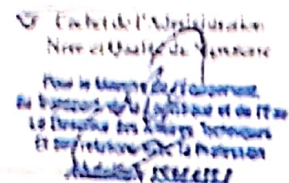 Cachet de l'Administration
Nom et Qualité du Signataire
Pour le Ministre de l'Equipement,
du Transport, de la Logistique et de l'Eau
Le Directeur des Affaires Techniques
Et des relations avec la Profession